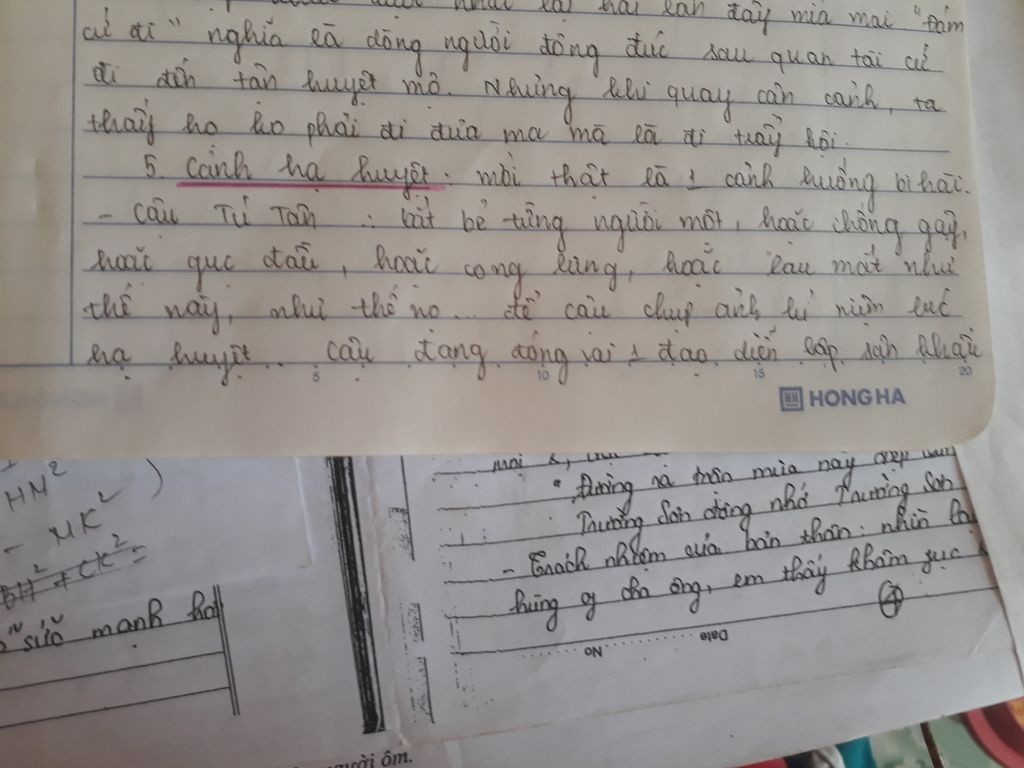 nhắc lại hai lần đầy mỉa mai "đám
cứ đi" nghĩa là dòng người đông đúc sau quan tài cứ
đi đến tận huyệt mộ. Nhưng khi quay cận cảnh, ta
thấy họ ko phải đi đưa ma mà là đi trẩy hội.
5. Cảnh hạ huyệt: mới thật là 1 cảnh tượng bi hài.
- Cậu Tú Tân: bắt bẻ từng người một, hoặc chống gậy,
hoặc gục đầu, hoặc cong lưng, hoặc lau mắt như
thế này, như thế nọ... để cậu chụp ảnh kỉ niệm lúc
hạ huyệt. Cậu đang đóng vai 1 đạo diễn lớp sân khấu
5 10 15 20
HONG HA
HN²
- NK²
BH² + CK² =
sức mạnh
• Đường ra trận mùa này đẹp lắm
Trường Sơn đông nhớ Trường Sơn
- Trách nhiệm của bản thân: nhìn
hùng of cha ông, em thấy khâm phục
4
Date
No
người ôm.